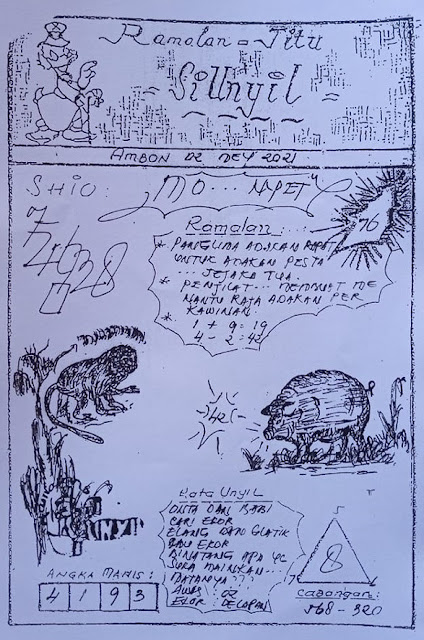 Ramalan = Jitu
= SiUnyil =
AMBON 02 MEY 2021
SHIO :
MO... NYET"
7
74638
0
76
Ramalan :
* PANGLIMA ADAKAN RAPAT
UNTUK ADAKAN PESTA
... JEJAKA TUA.
* PENJILAT ... MEMBUAT ME
NANTU RAJA ADAKAN PER
KAWINAN.
* 1 + 9 = 19
4 - 2 = 42
Kata Unyil
UNTA DAN BABI
CARI EKOR
ELANG DAN GLATIK
BAU EKOR
BINATANG APA YG
SUKA MAINKAN...
MATANYA ??
AWAS : 02
EKOR : DELAPAN
ANGKA MANIS :
4 1 9 3
5
8
7
CADANGAN :
568 - 320